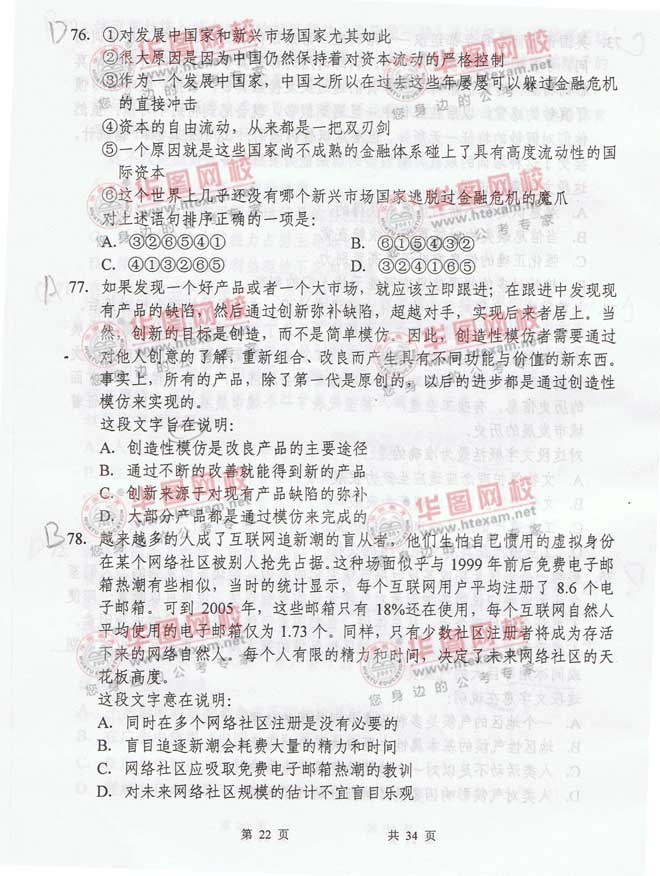 D 76. ①对发展中国家和新兴市场国家尤其如此
②很大原因是因为中国仍然保持着对资本流动的严格控制
③作为一个发展中国家，中国之所以在过去这些年屡屡可以躲过金融危机
的直接冲击
④资本的自由流动，从来都是一把双刃剑
⑤一个原因就是这些国家尚不成熟的金融体系碰上了具有高度流动性的国
际资本
⑥这个世界上几乎还没有哪个新兴市场国家逃脱过金融危机的魔爪
对上述语句排序正确的一项是：
A. ③②⑥⑤④① B. ⑥①⑤④③②
C. ④①③②⑥⑤ D. ③②④①⑥⑤
A 77. 如果发现一个好产品或者一个大市场，就应该立即跟进；在跟进中发现现
有产品的缺陷，然后通过创新弥补缺陷，超越对手，实现后来者居上。当
然，创新的目标是创造，而不是简单模仿。因此，创造性模仿者需要通过
对他人创意的了解，重新组合、改良而产生具有不同功能与价值的新东西。
事实上，所有的产品，除了第一代是原创的，以后的进步都是通过创造性
模仿来实现的。
这段文字旨在说明：
A. 创造性模仿是改良产品的主要途径
B. 通过不断的改善就能得到新的产品
C. 创新来源于对现有产品缺陷的弥补
D. 大部分产品都是通过模仿来完成的
B 78. 越来越多的人成了互联网追新潮的盲从者，他们生怕自己惯用的虚拟身份
在某个网络社区被别人抢先占据。这种场面似乎与 1999 年前后免费电子邮
箱热潮有些相似，当时的统计显示，每个互联网用户平均注册了 8.6 个电
子邮箱。可到 2005 年，这些邮箱只有 18%还在使用，每个互联网自然人
平均使用的电子邮箱仅为 1.73 个。同样，只有少数社区注册者将成为存活
下来的网络自然人。每个人有限的精力和时间，决定了未来网络社区的天
花板高度。
这段文字意在说明：
A. 同时在多个网络社区注册是没有必要的
B. 盲目追逐新潮会耗费大量的精力和时间
C. 网络社区应吸取免费电子邮箱热潮的教训
D. 对未来网络社区规模的估计不宜盲目乐观
第 22 页 共 34 页
华图网校
www.htexam.net
您身边的公考专家